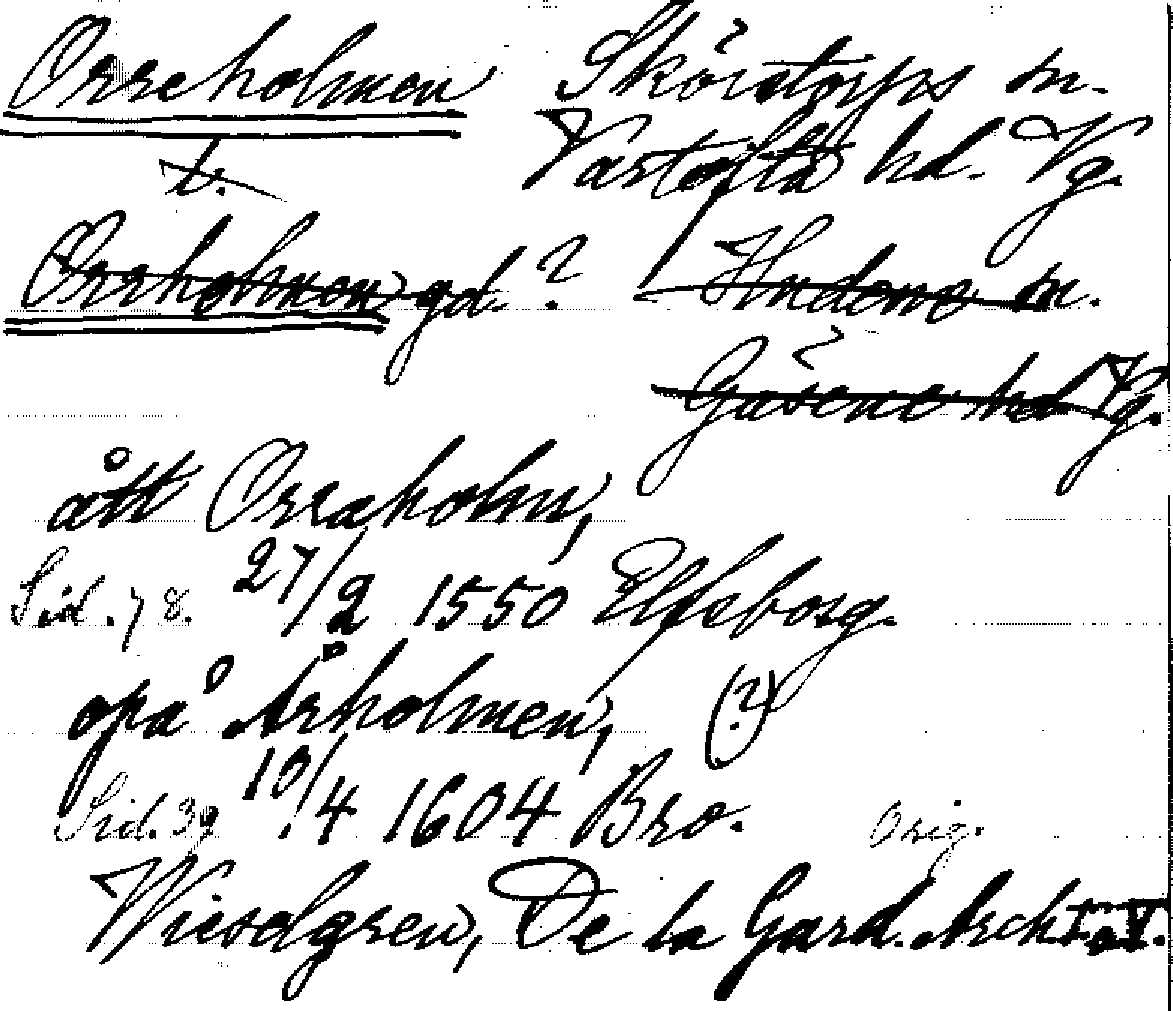 Orreholmen Skörstorps sn.
Vartofta hd. Vg.
t.
Orrholmen gd. ? Hudene sn.
Gäsene hd Vg.
att Orraholm,
Sid. 78. 27/2 1550 Elfsborg.
opå Årholmen, (?)
Sid. 39 10/4 1604 Bro. Orig.
Wieselgren, De la Gard. Arch I. a. V.